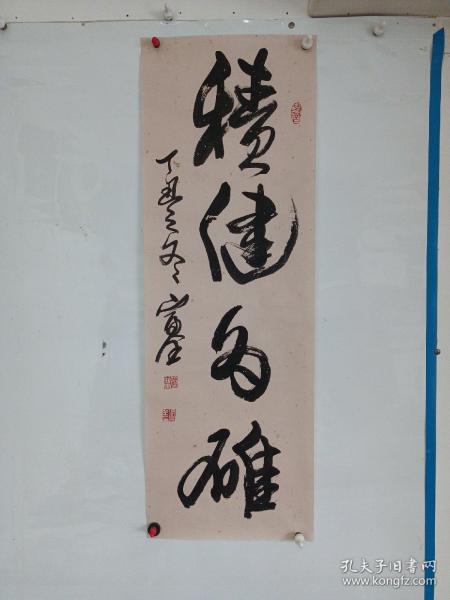 積健為雄
丁丑之冬
孔夫子旧书网
www.kongfz.com